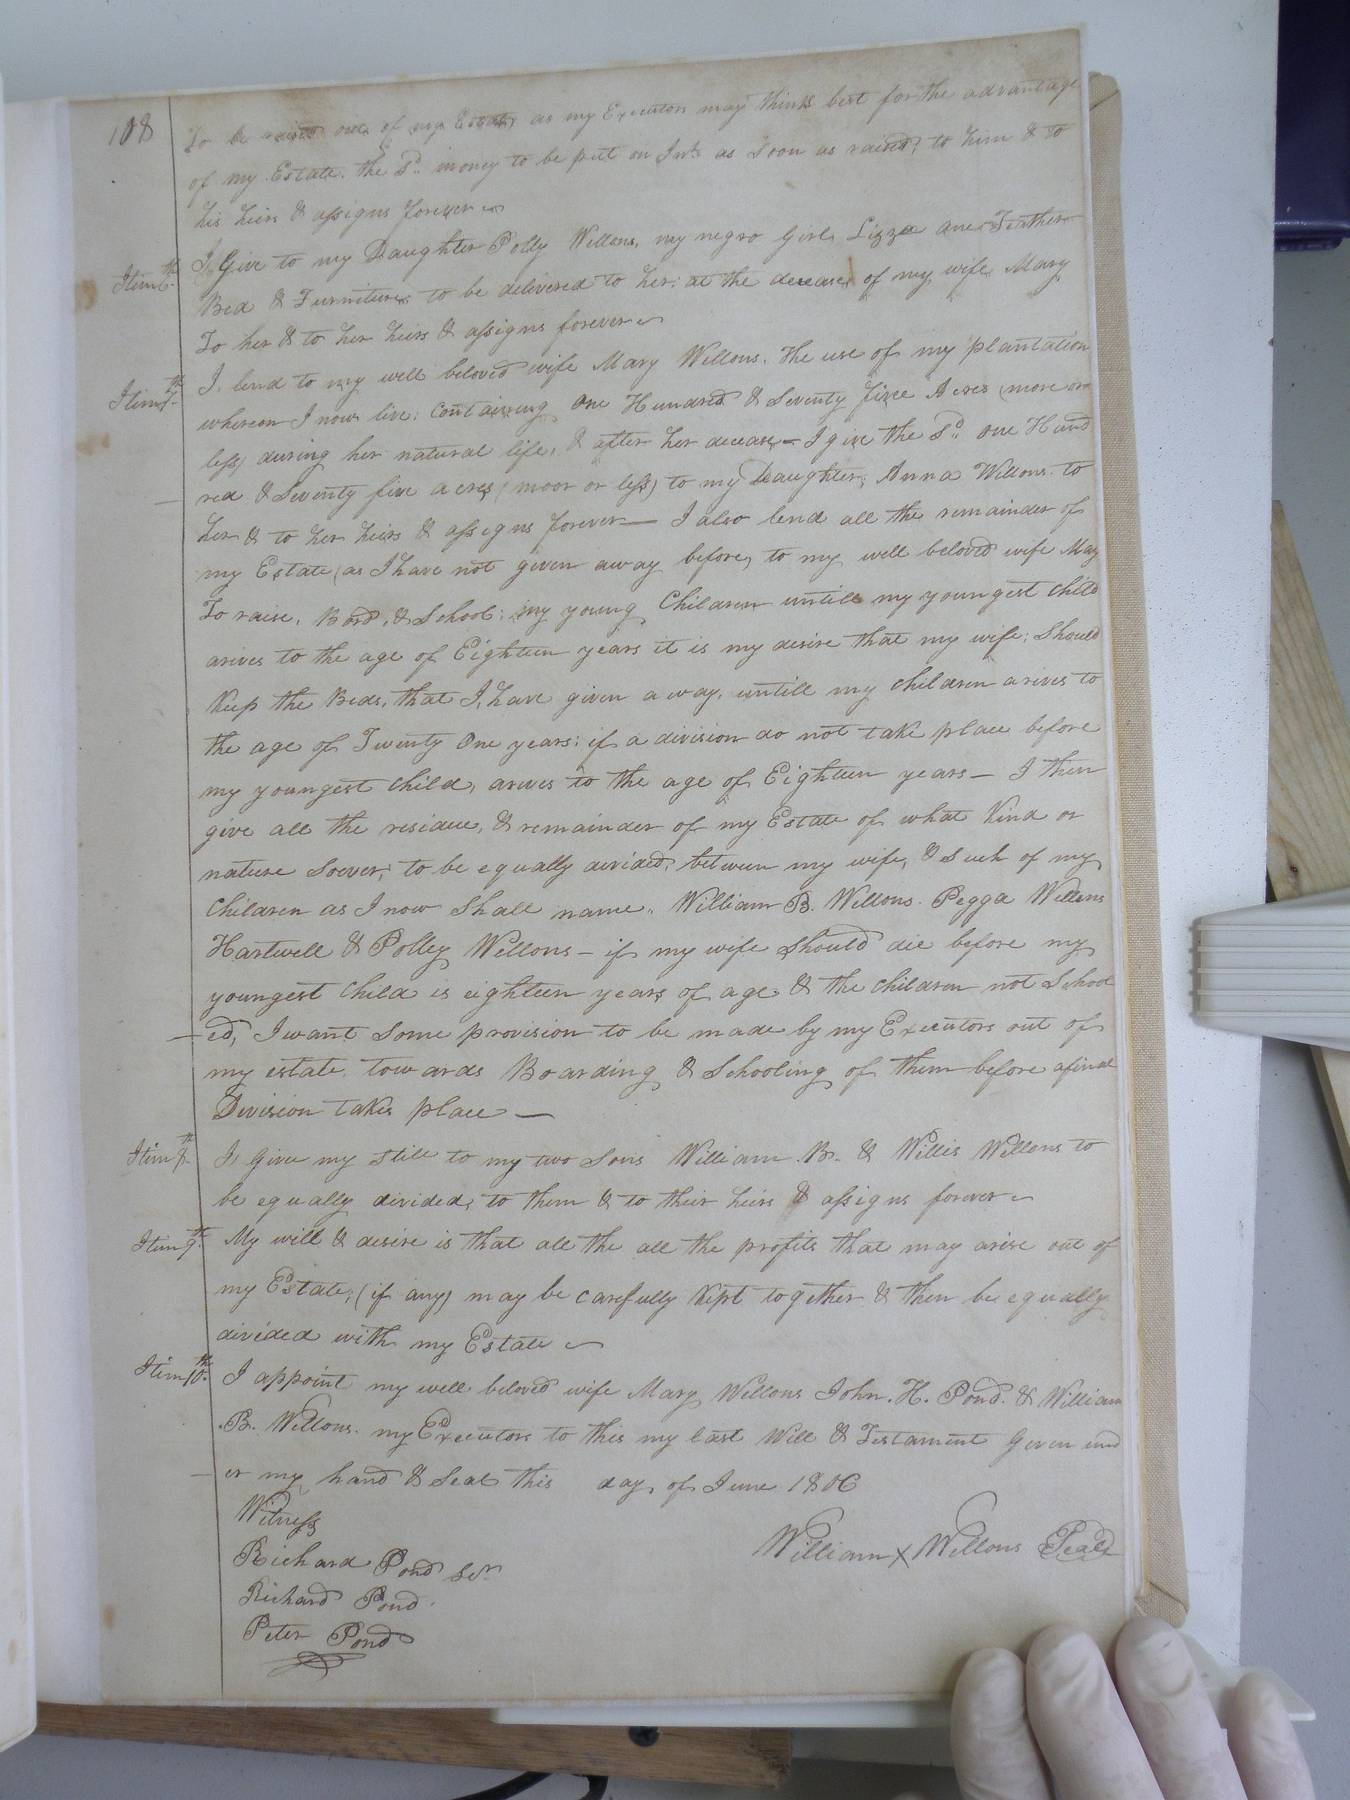 108
To be raised out of my Estate as my Executors may think best for the advantage
of my Estate. the Sd. money to be put on Int. as Soon as raised, to him & to
his heirs & assigns forever
Itim 6th. I Give to my Daughter Polly Wellons, my negro Girl Lizza one Feather
Bed & Furniture to be delivered to her: at the decease of my wife Mary
To her & to her heirs & assigns forever
Itim 7th. I lend to my well beloved wife Mary Wellons. the use of my plantation
whereon I now live: Containing One Hundred & Seventy five Acres (more or
less) during her natural life, & after her decease — I give the Sd. One Hund
red & Seventy five acres (moor or less) to my Daughter, Anna Wellons to
her & to her heirs & assigns forever — I also lend all the remainder of
my Estate (as I have not given away before) to my well beloved wife May
To raise, Bord, & School: my young Children untill my youngest Child
arives to the age of Eighteen years it is my desire that my wife: Should
Keep the Beds, that I, have given away, untill my children arives to
the age of Twenty One years: if a division do not take place before
my youngest Child, arives to the age of Eighteen years — I then
give all the residue, & remainder of my Estate of what Kind or
nature Soever; to be equally divided; between my wife, & Such of my
Children as I now Shall name, William B. Wellons. Pegga Wellons
Hartwell & Polley Wellons — if my wife Should die before my
youngest Child is eighteen years of age & the children not School
— ed, I want Some provision to be made by my Executors out of
my estate towards Boarding & Schooling of them before afinal
Division takes place —
Itim 8th. I, Give my Still to my two Sons William B. & Willis Wellons to
be equally divided, to them & to their heirs & assigns forever
Itim 9th. My will & desire is that all the all the profits that may arise out of
my Estate; (if any) may be carefully Kept together & then be equally
divided with my Estate
Itim 10th. I appoint my well beloved wife Mary Wellons John. H. Pond. & William
B. Wellons. my Executors to this my last Will & Testament Given und
— er my hand & Seal this day of June 1806
Witness
William X Wellons Seal
Richard Pond Ser
Richard Pond.
Peter Pond